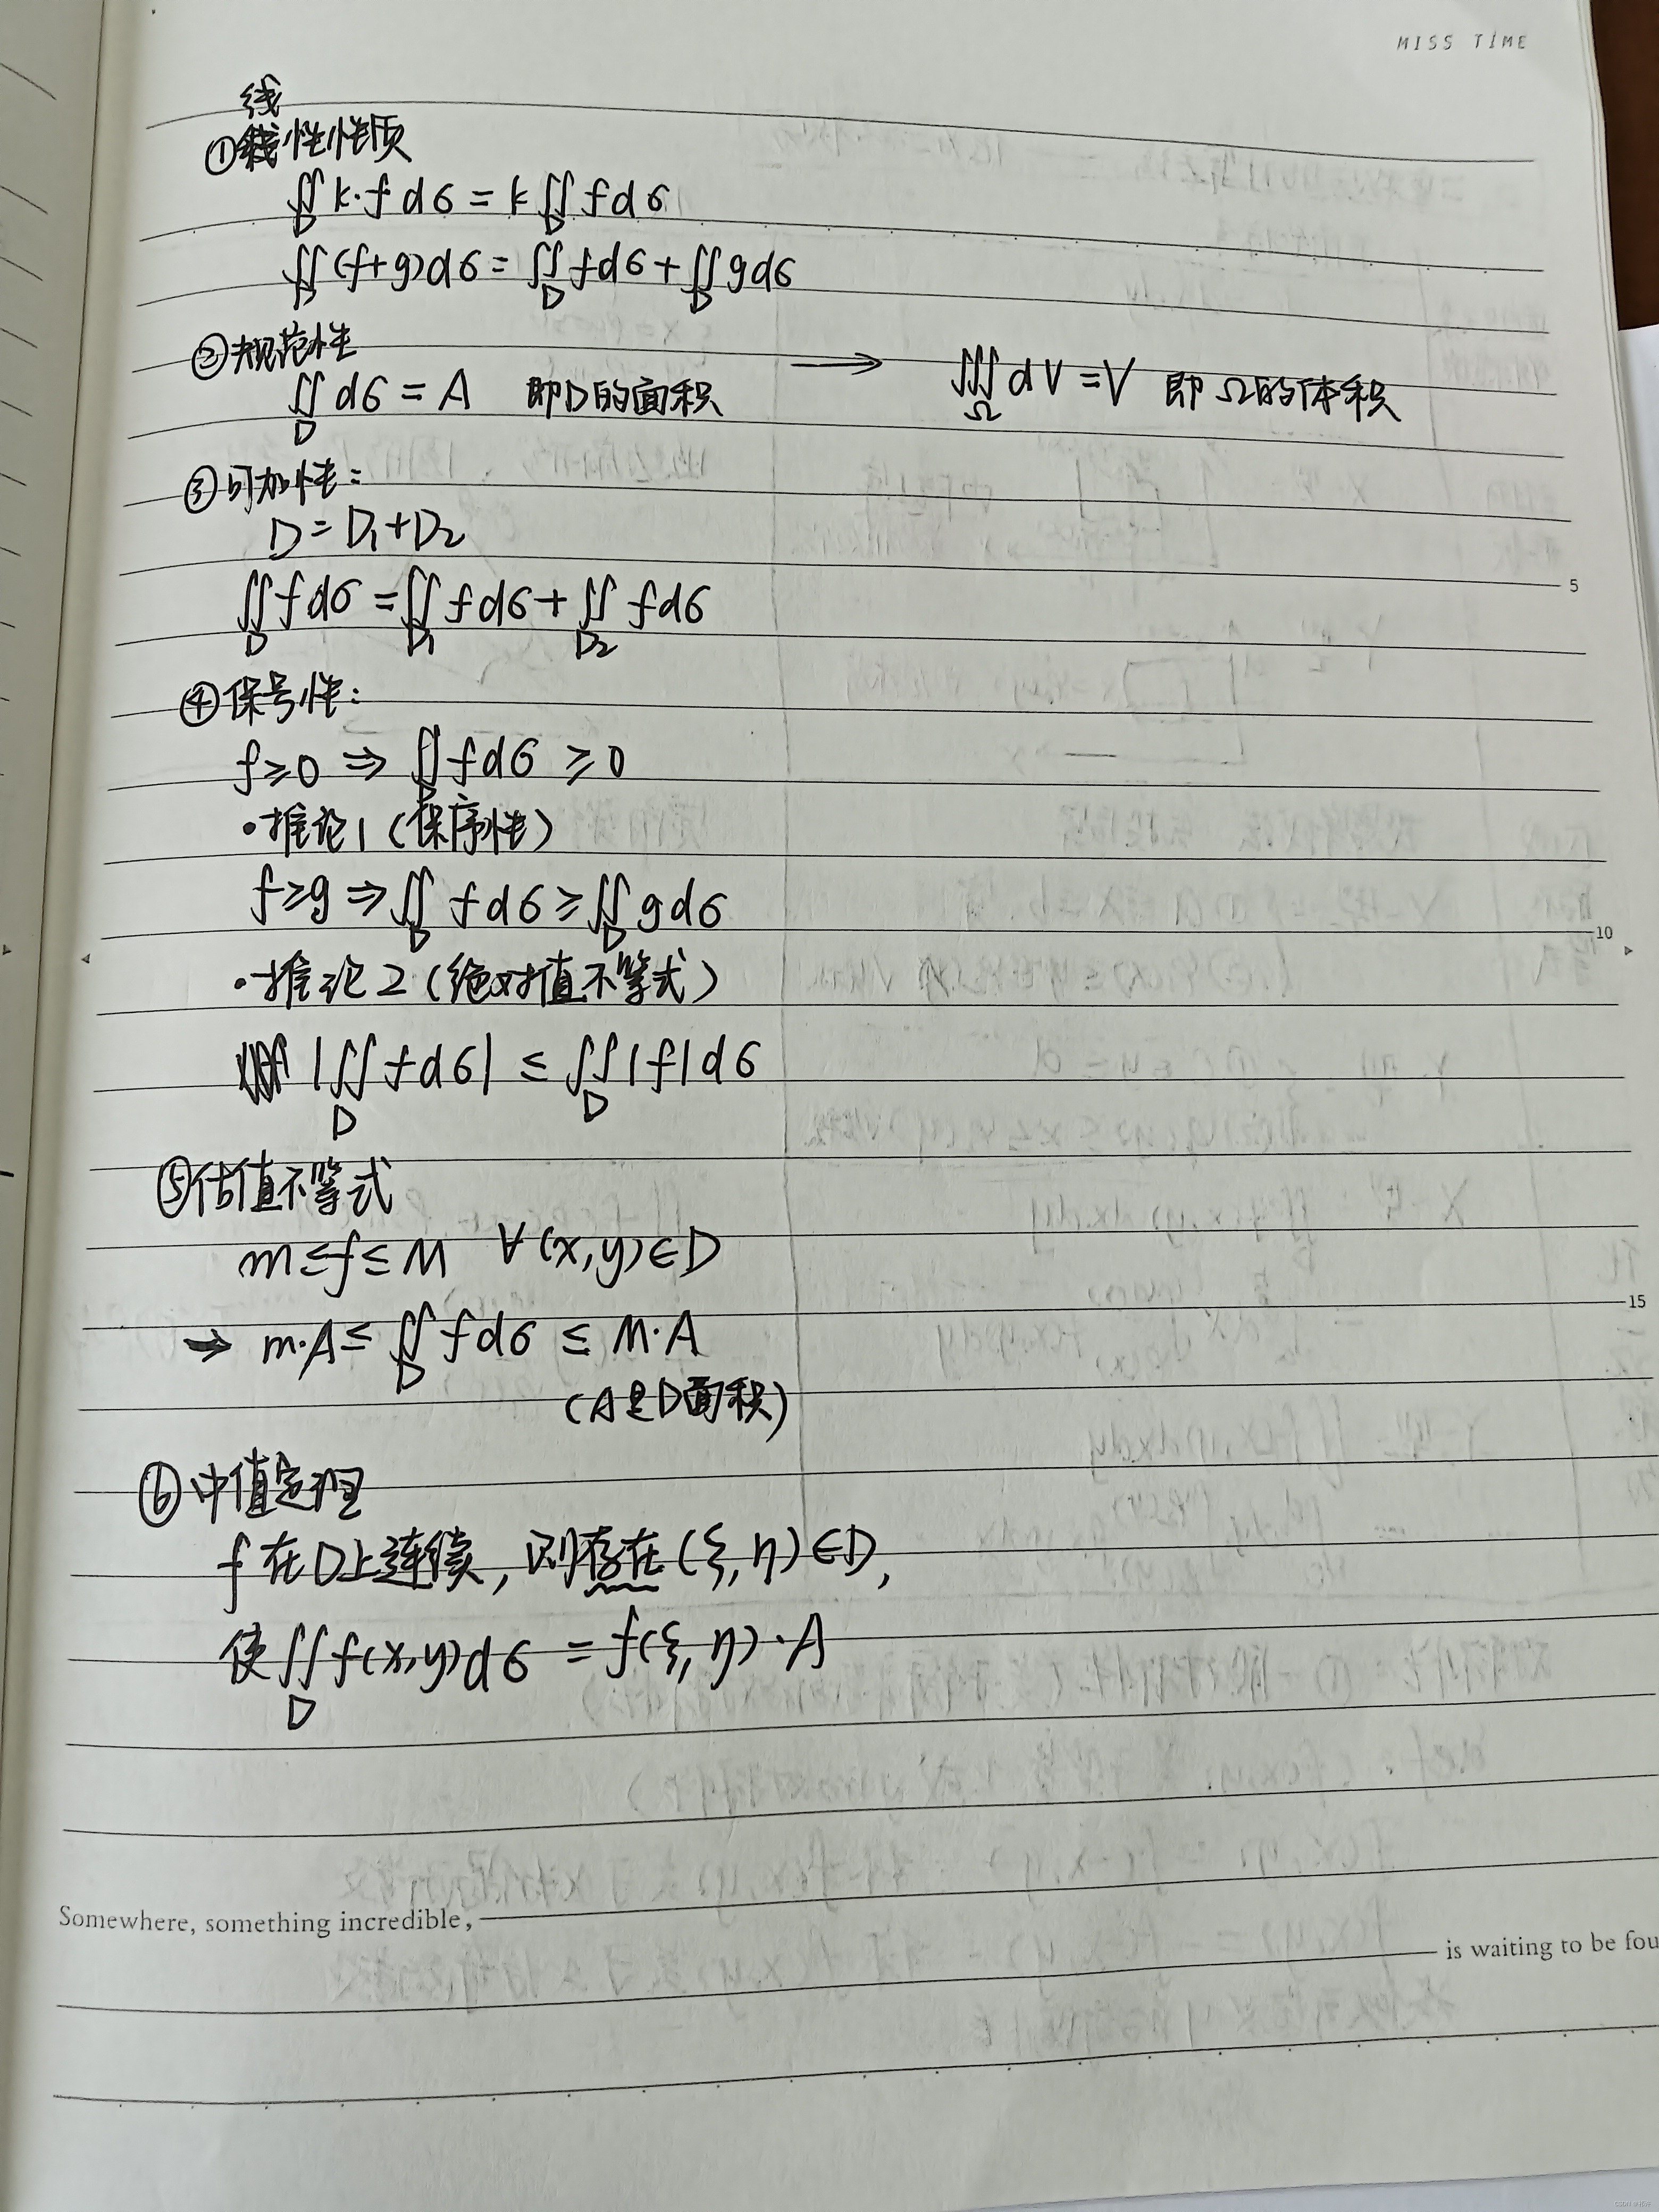 MISS TIME
线
①线性性质
∬_D k·f dσ = k∬_D fdσ
∬_D (f+g)dσ = ∬_D fdσ + ∬_D gdσ
②规范性
∬_D dσ = A 即D的面积 → ∭_Ω dV = V 即Ω的体积
③可加性:
D = D₁+D₂
∬_D fdσ = ∬_D₁ fdσ + ∬_D₂ fdσ
5
④保号性:
f≥0 ⇒ ∬_D fdσ ≥0
·推论1(保序性)
f≥g ⇒ ∬_D fdσ ≥ ∬_D gdσ
10
·推论2(绝对值不等式)
|∬_D fdσ| ≤ ∬_D |f|dσ
⑤估值不等式
m≤f≤M ∀(x,y)∈D
15
→ m·A ≤ ∬_D fdσ ≤ M·A
(A是D面积)
⑥中值定理
f在D上连续,则存在(ξ,η)∈D,
使∬_D f(x,y)dσ = f(ξ,η)·A
Somewhere, something incredible,
is waiting to be fou